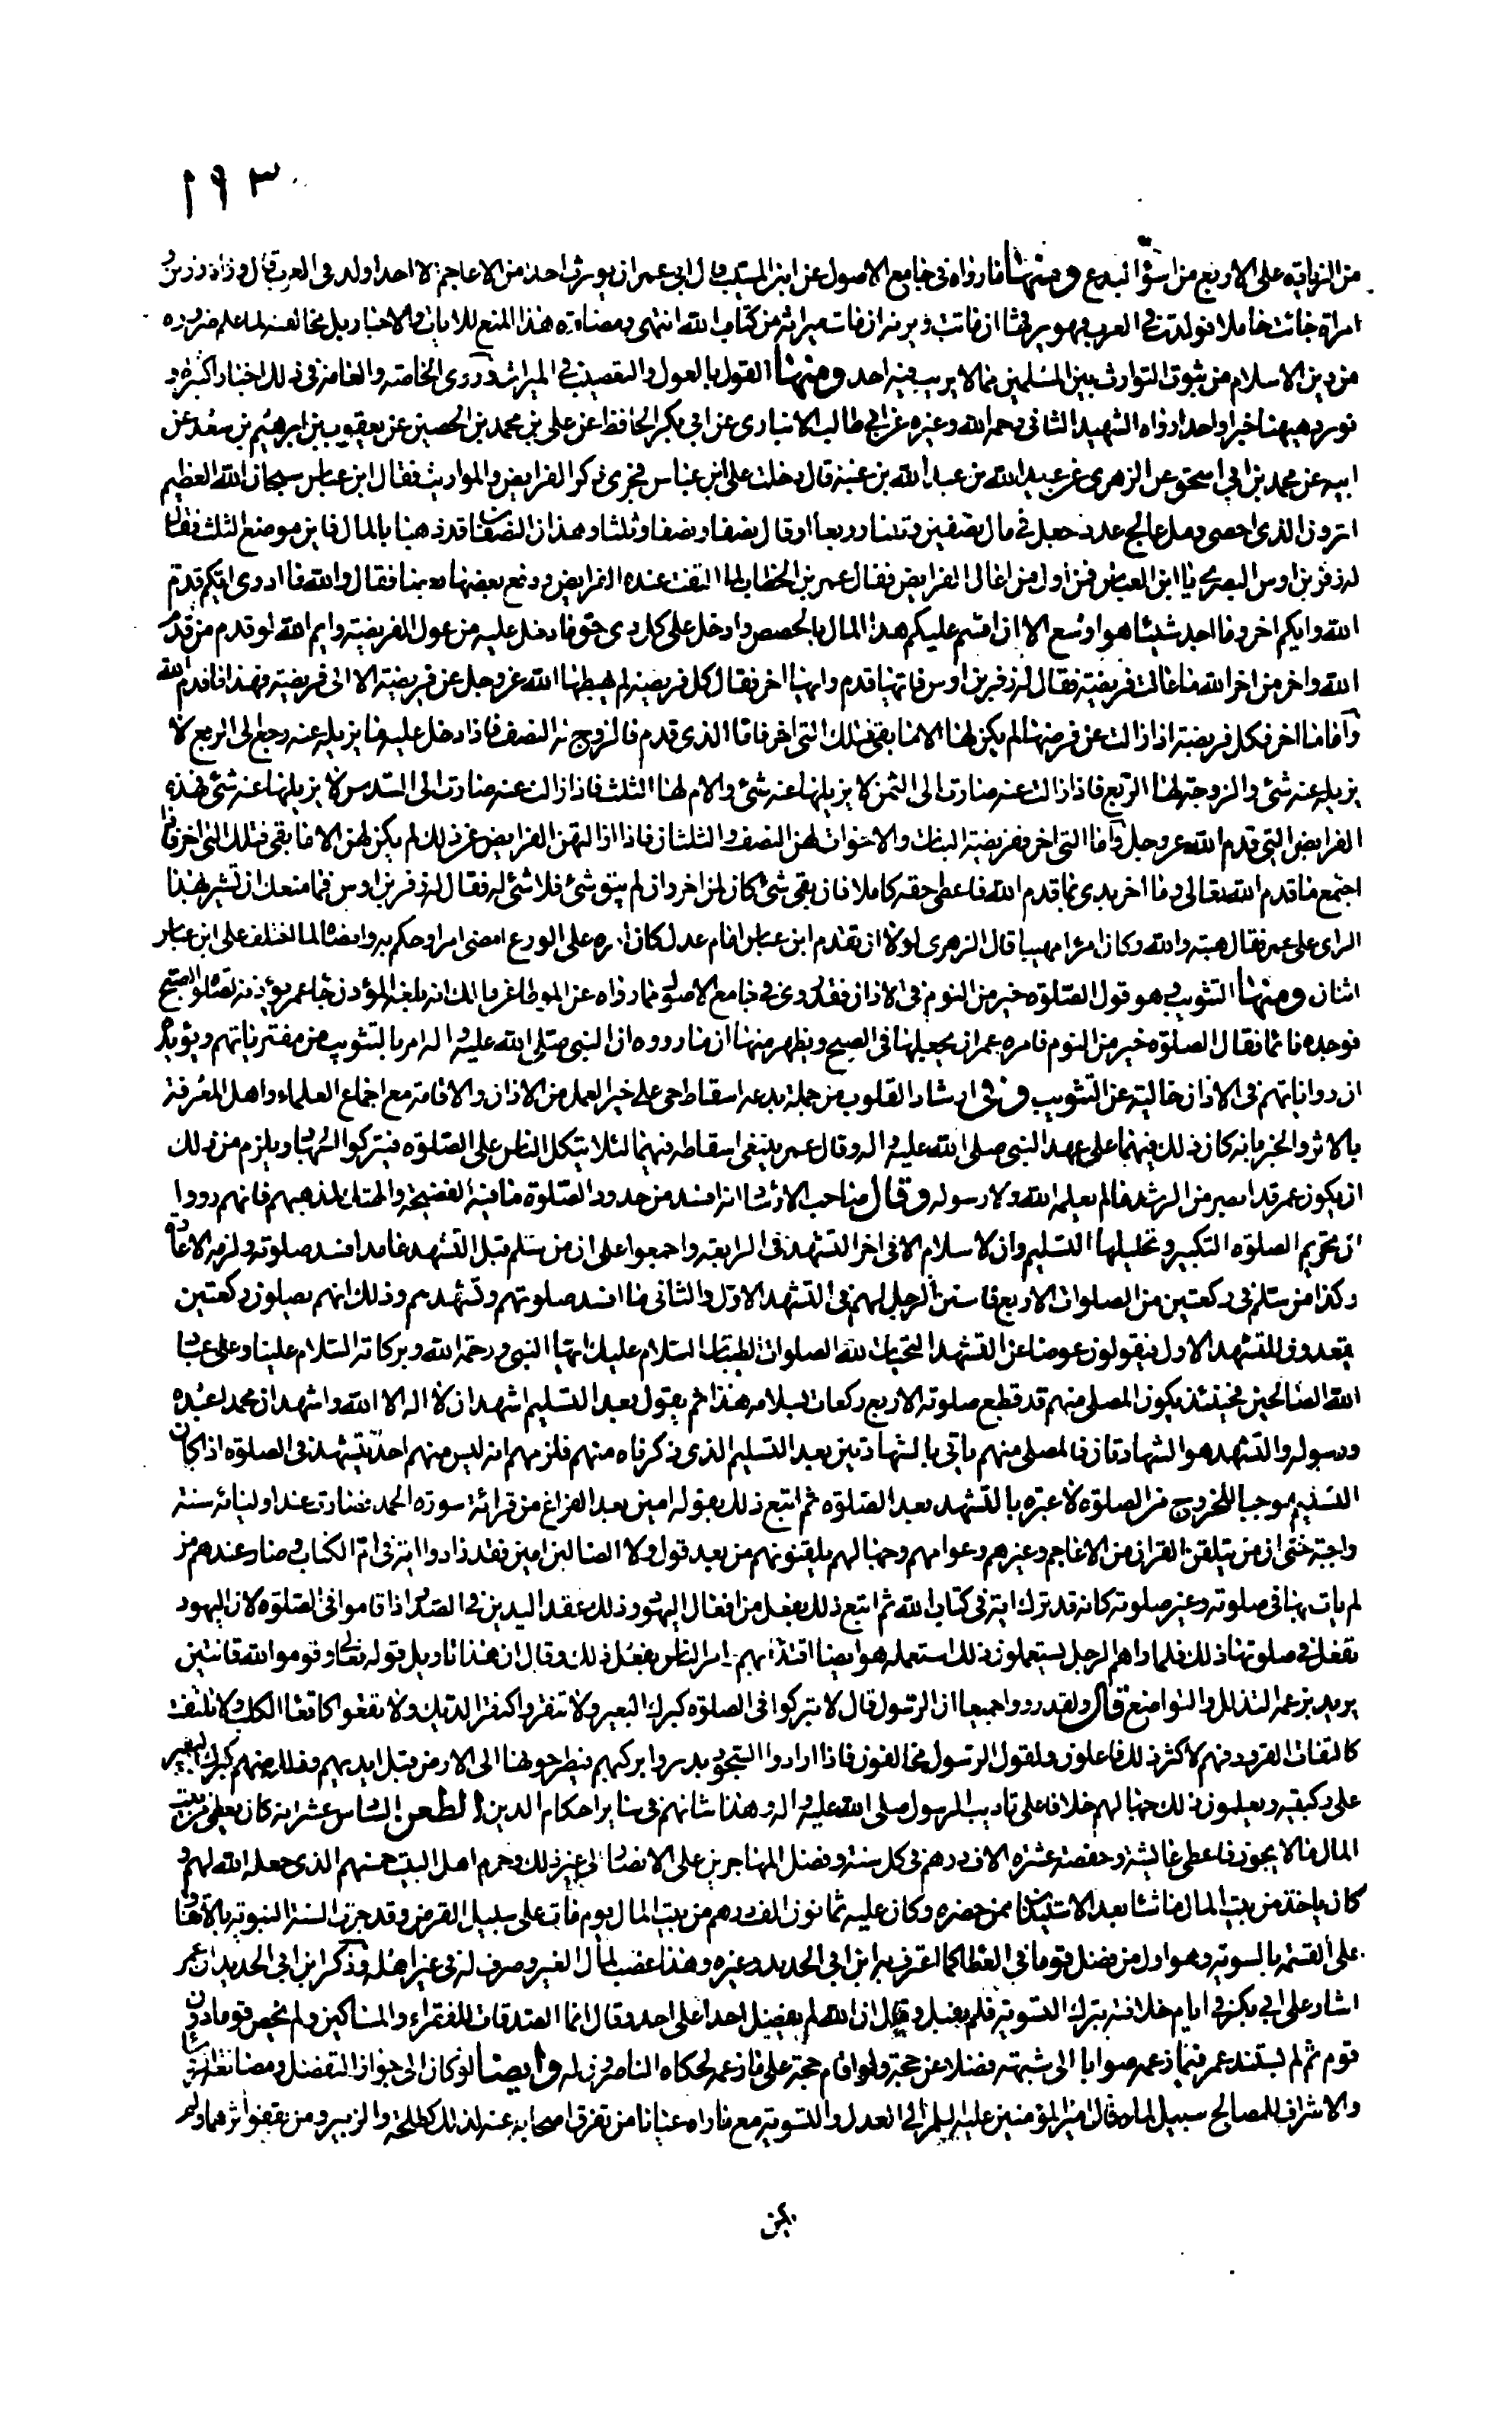 ١٩٣
من الزيادة على الاربع من اسوء البدع ومنها ما رواه في جامع الاصول عن ابن المسيب قال ابى عمر ان يورث احدا من الاعاجم الا احدا ولد في العرب قال وزاد رزين و
امراة جائت حاملا فولدت في العرب فهو يرثها ان ماتت وترثه ان مات ميراثه من كتاب الله انتهى ومضادة هذا المنع للايات والاخبار بل مخالفته لما علم ضرورة
من دين الاسلام من ثبوت التوارث بين المسلمين مما لا يريب فيه احد ومنها القول بالعول والتعصيب في الميراث وروى الخاصة والعامة في ذلك اخبارا كثيرة و
نورد هيهنا خبرا واحدا رواه الشهيد الثاني رحمه الله وغيره عن ابي طالب الانباري عن ابي بكر الحافظ عن علي بن محمد بن الحصين عن يعقوب بن ابرهيم بن سعد عن
ابيه عن محمد بن ابي اسحق عن الزهرى عن عبيد الله بن عبد الله بن عتبة قال دخلت على ابن عباس فجرى ذكر الفرايض والمواريث فقال ابن عباس سبحان الله العظيم
اترون الذى احصى رمل عالج عددا جعل في مال نصفين وثلثا وربعا او قال نصفا ونصفا وثلثا وهذان النصفان قد ذهبا بالمال فاين موضع الثلث فقال
له زفر بن اوس البصرى يا ابن العباس فمن اول من اعال الفرايض فقال عمر بن الخطاب لما التفت عنده الفرايض ودفع بعضها بعضا فقال والله ما ادرى ايكم قدم
الله وايكم اخر وما اجد شيئا هو اوسع الا ان اقسم عليكم هذا المال بالحصص وادخل على كل ذى حق ما دخل عليه من عول الفريضة وايم الله لو قدم من قدم
الله واخر من اخر الله ما عالت فريضة فقال له زفر بن اوس فايتها قدم وايها اخر فقال كل فريضة لم يهبطها الله عز وجل عن فريضة الا الى فريضة فهذا ما قدم الله
واما ما اخر فكل فريضة اذا زالت عن فرضها لم يكن لها الا ما بقي فتلك التى اخر فاما الذى قدم فالزوج له النصف فاذا دخل عليه ما يزيله عنه رجع الى الربع لا
يزيله عنه شئ والزوجة لها الربع فاذا زالت عنه صارت الى الثمن لا يزيلها عنه شئ والام لها الثلث فاذا زالت عنه صارت الى السدس لا يزيلها عنه شئ فهذه
الفرايض التى قدم الله عز وجل واما التى اخر ففريضة البنات والاخوات لهن النصف والثلثان فاذا ازالتهن الفرايض عن ذلك لم يكن لهن الا ما بقي فتلك التى اخر فاذا
اجتمع ما قدم الله تعالى وما اخر بدى بما قدم الله فاعطى حقه كاملا فان بقى شئ كان لمن اخر وان لم يبق شئ فلا شئ له فقال له زفر بن اوس فما منعك ان تشير بهذا
الراى على عمر فقال هبته والله وكان امرا مهيبا قال الزهرى لولا ان تقدم ابن عباس امام عدل كان امره على الورع امضى امرا وحكم به وامضاه لما اختلف على ابن عباس
اثنان ومنها التثويب وهو قول الصلوة خير من النوم في الاذان فقد روى في جامع الاصول مما رواه عن الموطا عن مالك انه بلغه المؤذن جاء عمر يؤذنه لصلوة الصبح
فوجده نائما فقال الصلوة خير من النوم فامره عمر ان يجعلها في الصبح ويظهر منها ان ما رووه ان النبي صلى الله عليه واله امر بالتثويب من مفترياتهم ويؤيد
ان رواياتهم في الاذان خالية عن التثويب وفي ارشاد القلوب من جملة بدعه اسقاط حي على خير العمل من الاذان والاقامة مع اجماع العلماء واهل المعرفة
بالاثر والخبر بانه كان ذلك فيهما على عهد النبي صلى الله عليه واله وقال عمر ينبغى اسقاطه منهما لئلا يتكل الناس على الصلوة فيتركوا الجهاد ويلزم من ذلك
ان يكون عمر قد ابصر من الرشد ما لم يعلمه الله ولا رسوله وقال صاحب الارشاد انه افسد من حدود الصلوة ما فيه الفضيحة والهتك لمذهبهم فانهم رووا
ان تحريم الصلوة التكبير وتحليلها التسليم وان لا سلام الا في اخر التشهد في الرابعة واجمعوا على ان من سلم قبل التشهد عامدا افسد صلوته ولزمه الاعادة
وكذا من سلم في ركعتين من الصلوات الاربع فاستن الرجل لهم في التشهد الاول والثانى ما افسد صلوتهم وتشهدهم وذلك انهم يصلون ركعتين
يقعدون للتشهد الاول فيقولون عوضا عن التشهد التحيات لله الصلوات الطيبات السلام عليك ايها النبى ورحمة الله وبركاته السلام علينا وعلى عباد
الله الصالحين فحينئذ يكون المصلى منهم قد قطع صلوته الاربع ركعات بسلامه هذا ثم يقول بعد التسليم اشهد ان لا اله الا الله واشهد ان محمدا عبده
ورسوله والتشهد هو الشهادتان فالمصلى منهم ياتى بالشهادتين بعد التسليم الذى ذكرناه منهم فلزمهم انه ليس منهم احد يتشهد في الصلوة اذ كان
التسليم موجبا للخروج من الصلوة لا عبرة بالتشهد بعد الصلوة ثم اتبع ذلك بقوله امين بعد الفراغ من قرائة سورة الحمد فصارت عند اوليائه سنة
واجبة حتى ان من يتلقن القران من الاعاجم وغيرهم وعوامهم وجهالهم يلقنونهم من بعد قول ولا الضالين امين فقد زادوا اية في ام الكتاب وصار عندهم من
لم يات بها في صلوته وغير صلوته كانه قد ترك اية في كتاب الله ثم اتبع ذلك بفعل من افعال اليهود وذلك عقد اليدين في الصدر اذا قاموا في الصلوة لان اليهود
تفعل في صلوتها ذلك فلما راهم الرجل يستعملون ذلك استعمله هو ايضا اقتداء بهم وامر الناس بفعل ذلك وقال ان هذا تاويل قوله تعالى وقوموا لله قانتين
يريد بزعمه التذلل والتواضع قال ولقد رووا جميعا ان الرسول قال لا تبركوا في الصلوة كبرك البعير ولا تنقروا كنقر الديك ولا تقعوا كاقعاء الكلب ولا تلتفتوا
كالتفات القرود فهم لاكثر ذلك فاعلون ولقول الرسول مخالفون فاذا ارادوا السجود بدروا بركبهم فيطرحونها الى الارض قبل ايديهم وذلك منهم كبرك البعير
على ركبتيه ويعلمون ذلك جهالهم خلافا على تاديب الرسول صلى الله عليه واله وهذا شانهم في ساير احكام الدين الطعن السادس عشر انه كان يعطى من بيت
المال ما لا يجوز فاعطى عايشة وحفصة عشرة الاف درهم في كل سنة وفضل المهاجرين على الانصار الى غير ذلك وحرم اهل البيت خمسهم الذى جعله الله لهم و
كان ياخذ من بيت المال ما شاء بعد الاستيذان ممن حضره وكان عليه ثمانون الف درهم من بيت المال يوم مات على سبيل القرض وقد جرت السنة النبوية بالاتفاق
على القسمة بالسوية وهو اول من فضل قوما في العطا كما اعترف به ابن ابى الحديد وغيره وهذا غصب لمال الغير وصرف له في غير اهله وذكر ابن ابى الحديد ان عمر
اشار على ابي بكر في ايام خلافته بترك التسوية فلم يقبل وقال ان الله لم يفضل احدا على احد وقال انما الصدقات للفقراء والمساكين ولم يخص قوما دون
قوم ثم لم يستند عمر فيما زعمه صوابا الى شبهة فضلا عن حجة ولو اقام حجة على ما زعمه لحكاه الناصرون له وايضا لو كان الى جواز التفضل ومصانعة الرؤساء
والاشراف للمصالح سبيل لما امير المؤمنين عليه السلم الى العدل والتسوية مع ما راه عيانا من تفرق اصحابه عنه لذلك كطلحة والزبير ومن يقفو اثرهما ولم
يكن